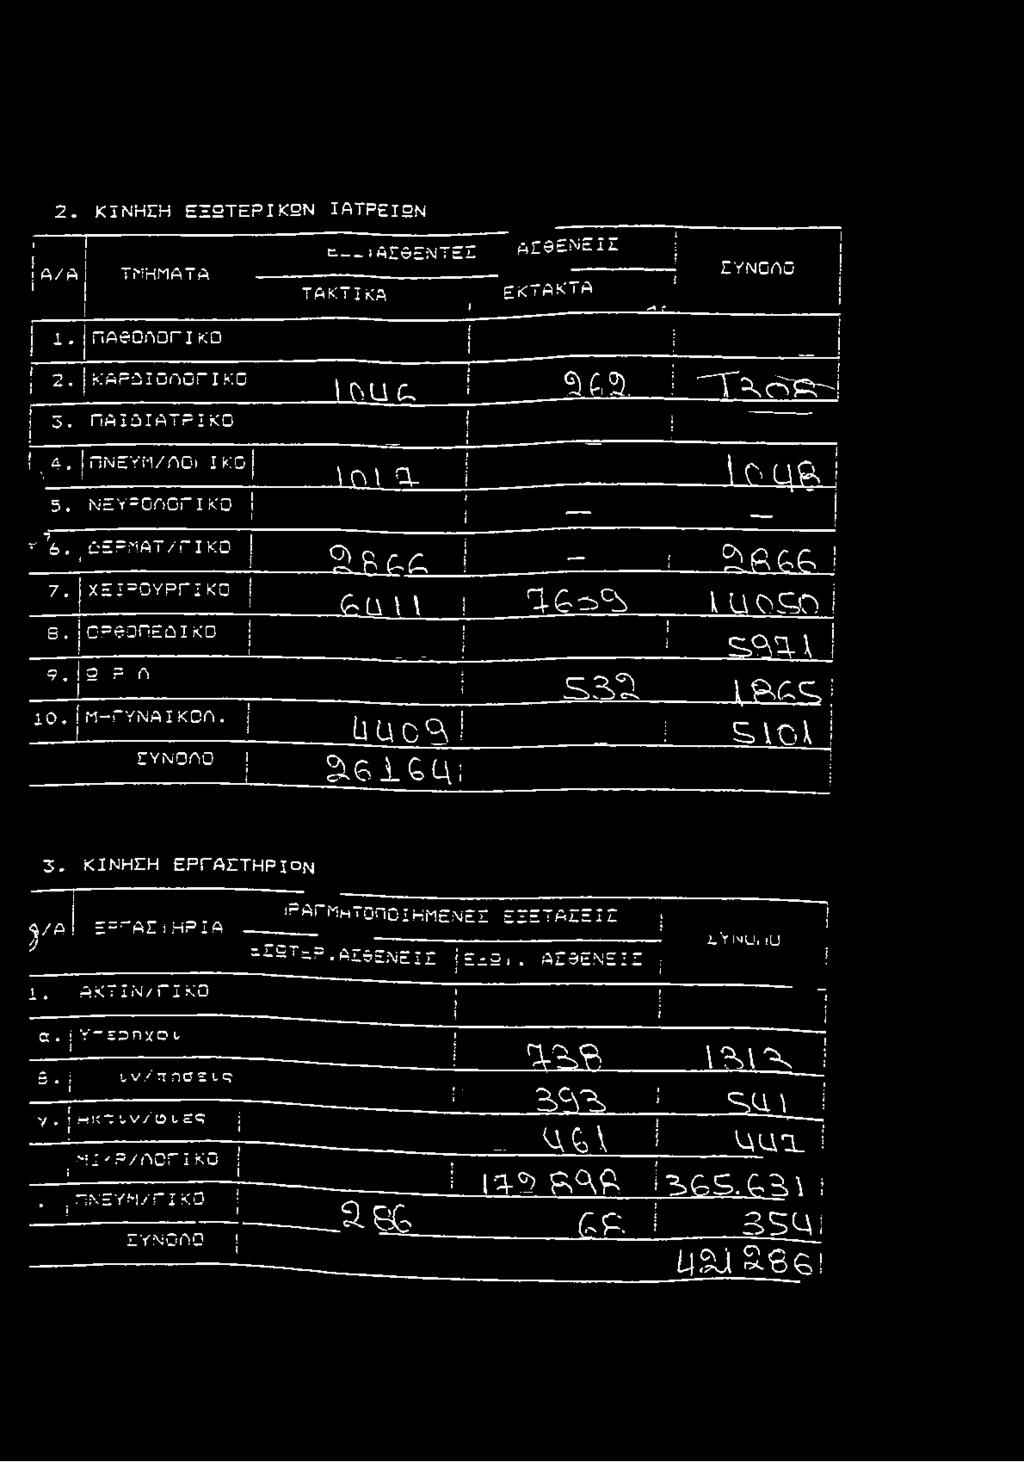 2. ΚΙΝΗΣΗ ΕΞΩΤΕΡΙΚΩΝ ΙΑΤΡΕΙΩΝ
Α/Α ΤΜΗΜΑΤΑ ΑΣΘΕΝΕΙΣ ΣΥΝΟΛΟ
ΤΑΚΤΙΚΑ ΕΚΤΑΚΤΑ
1. ΠΑΘΟΛΟΓΙΚΟ
2. ΚΑΡΔΙΟΛΟΓΙΚΟ 1046 262 1308
3. ΠΑΙΔΙΑΤΡΙΚΟ
4. ΠΝΕΥΜ/ΛΟΓΙΚΟ 1017 1048
5. ΝΕΥΡΟΛΟΓΙΚΟ — —
6. ΔΕΡΜΑΤ/ΓΙΚΟ 2866 — 2866
7. ΧΕΙΡΟΥΡΓΙΚΟ 6411 7639 14050
8. ΟΡΘΟΠΕΔΙΚΟ 5971
9. Ω Ρ Λ 532 1865
10. Μ-ΓΥΝΑΙΚΟΛ. 4409 5101
ΣΥΝΟΛΟ 26164
3. ΚΙΝΗΣΗ ΕΡΓΑΣΤΗΡΙΩΝ
Α/Α ΕΡΓΑΣΤΗΡΙΑ ΠΡΑΓΜΑΤΟΠΟΙΗΜΕΝΕΣ ΕΞΕΤΑΣΕΙΣ ΣΥΝΟΛΟ
ΕΣΩΤΕΡ.ΑΣΘΕΝΕΙΣ ΕΞΩΤ. ΑΣΘΕΝΕΙΣ
1. ΑΚΤΙΝ/ΓΙΚΟ
α. Υπερηχοι 738 1312
β. 393 541
γ. Ακτιν/φιες 461 447
ΜΙΚΡ/ΛΟΓΙΚΟ 365.631
. ΠΝΕΥΜ/ΓΙΚΟ 286 68 354
ΣΥΝΟΛΟ 421286